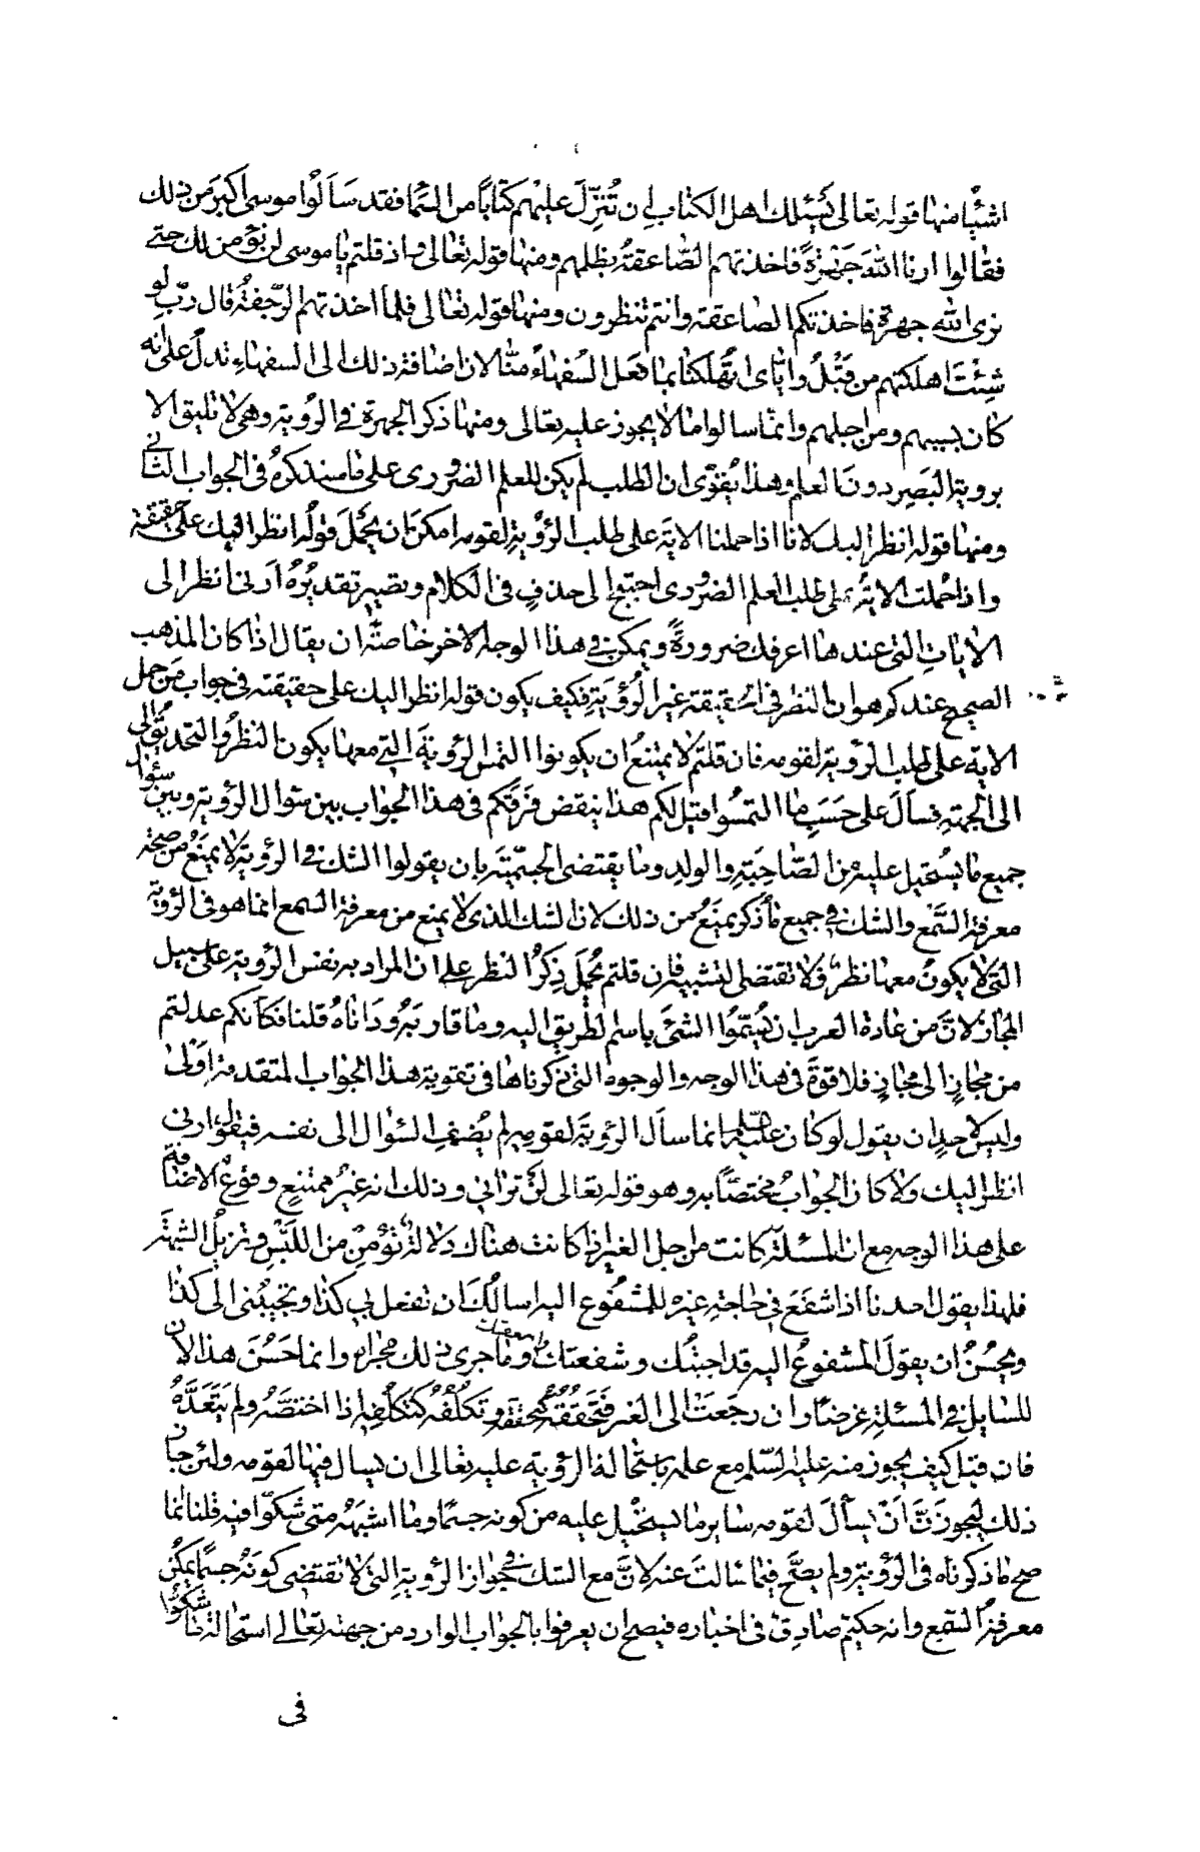 اشئا منها قوله تعالى يَسْئَلك اهل الكتاب ان تُنزِّلَ عليهم كتابًا من السّمآ فقد سَاَلُوا موسى اكبرَ من ذلك
فقالوا ارنا اللهَ جَهْرَةً فاخذتهم الصّاعقةُ بظلمهم ومنها قوله تعالى واذ قلتم يا موسى لن نؤمن لك حتى
نرى الله جهرة فاخذتكم الصاعقة وانتم تنظرون ومنها قوله تعالى فلمآ اخذتهم الرّجفةُ قال ربِّ لو
شِئْتَ اهلكتهم من قَبْلُ وايّاى اتُهلكنا بما فعل السُفهآءُ منّا لان اضافة ذلك الى السفهاءِ تدلّ على انه
كان بسببهم ومن اجلهم وانّما سالوا ما لا يجوز عليه تعالى ومنها ذكر الجهرة فى الرُوية وهى لا تليق الا
بروية البَصَرِ دونَ العلم وهذا يُقوّى ان الطلب لم يكن للعلم الضرورى على ما سنذكرهُ فى الجواب الثانى
ومنها قوله انظر اليك لانا اذا حملنا الايةَ على طلب الرُؤيةِ لقومه امكنَ ان يُحْمَلَ قولُه انظر اليك على حقيقته
واذا حُملت الايةُ على طلب العلم الضرورى احتيج الى حذفٍ فى الكلام ويصير تقديرُهُ اَرنى انظر الى
الايات التى عندها اعرفك ضرورةً ويمكن فى هذا الوجه الاخر خاصةً ان يقال اذا كان المذهب
الصحيح عندكم هو ان النظر فى الحقيقة غير الرُؤيَةِ فكيف يكون قوله انظر اليك على حقيقته فى جواب مَن حمل
الاية على طلب الرؤية لقومه فان قلتم لا يمتنعُ ان يكونوا التمسوا الرؤيةَ التى معها يكون النظرُ والتحديقُ الى
الى الجهةِ فسأل على حَسَبِ ما التمسُوا قيل لكم هذا ينقض فَرْقَكم فى هذا الجواب بين سُوال الرؤية وبين سؤال
جميع ما يستحيل عليه من الصّاحِبَةِ والولدِ وما يقتضى الجسميّةَ بان يقولوا الشك فى الرؤية لا يَمنَعُ من صحة
معرفة السَّمْع والشك فى جميع ما ذكر يمنَعُ من ذلك لان الشك الذى لا يمنع من معرفة السمع انما هو فى الرؤية
التى لا يكونُ معها نظرٌ ولا تقتضى التشبيه فان قلتم يُحْمَلُ ذِكرُ النظر على ان المراد به نفس الرؤية على سبيل
المجاز لانّ من عادة العرب ان يُسمُّوا الشئَ باسم الطريق اليه وما قاربَهُ ودَاناهُ قلنا فكانكم عدلتم
من مجازٍ الى مجازٍ فلا قوةَ فى هذا الوجه والوجوه التى ذكرناها فى تقوية هذا الجواب المتقدمة اَوْلىٰ
وليس لاحدٍ ان يقول لو كان عليه السلم انما سأل الرؤيةَ لقومه لم يُضِفِ السُوال الى نفسه فيقولَ ارنى
انظر اليك ولا كان الجوابُ مختصًّا به وهو قوله تعالى لَنْ ترانى وذلك انه غيرُ ممتنعٍ وقوعُ الاضافة
على هذا الوجه مع ان المسئلةَ كانت من اجل الغير اذا كانت هناك دلالة تُؤمِنُ من اللَبْسِ وتزيلُ الشبهةَ
فلهذا يقول احدنا اذا شفعَ فى حاجةِ غيرِه للمشفُوع اليه اسالُكَ ان تفعل بى كذا وتجيبُنى الى كذا
ويَحسُنُ ان يقولَ المشفوعُ اليه قد اجبتُك وشفعتك وما جرى ذلك مجراه وانما حَسُنَ هذا لان
للسايل فى المسئلةِ غرضًا وان رجَعَتْ الى الغير فتَحقّقُهُ وتكلّفُهُ كتكلُّفِه اذا اختصَّهُ ولم يَتَعَدَّهُ
فان قيل كيف يجوز منه عليه السّلم مع علمه باستحالة الرؤيةِ عليه تعالى ان يسال فيها لقومه ولئن جاز
ذلك ليجوزَنَّ اَنْ يسألَ لقومه ساير ما يستحيل عليه من كونه جسمًا وما اشبهه متى شكّوا فيه قلنا انما
صح ما ذكرناه فى الرؤية ولم يصحّ فيما سالتَ عنه لانّ مع الشك فى جواز الرؤيةِ التى لا تقتضى كونَهُ جسمًا يمكنُ
معرفةُ السّمع وانه حكيم صادِقٌ فى اخباره فيصح ان يعرفوا بالجواب الوارد من جهته تعالى استحالة ما شكّوا
فى